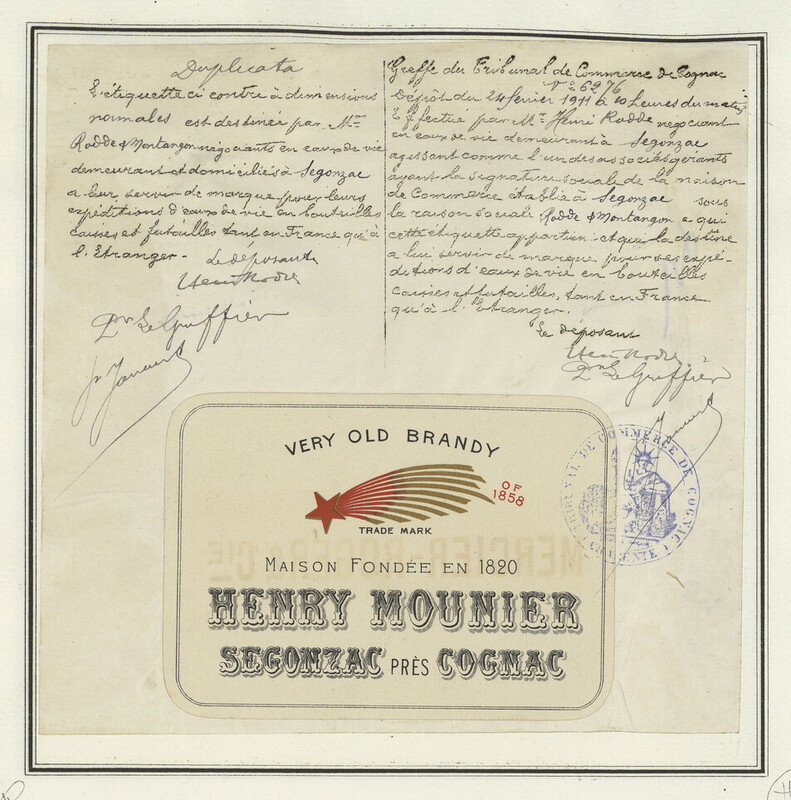 Duplicata
L'étiquette ci contre à dimensions
normales est destinée par Mrs
Rodde & Montangon négociants en eaux de vie
demeurant et domiciliés à Segonzac
a leur servir de marque pour leurs
expéditions d'eaux de vie en bouteilles
caisses et futailles tant en France qu'à
l'Etranger.
Le déposant
Henri Rodde
Pr Le Greffier
Greffe du Tribunal de Commerce de Cognac
No 6276
Dépôt du 24 février 1911 à 10 heures du matin
Effectué par Mr Henri Rodde négociant
en eaux de vie demeurant à Segonzac
agissant comme l'un des associés gérants
ayant la signature sociale de la maison
de Commerce établie à Segonzac sous
la raison sociale Rodde & Montangon a qui
cette étiquette appartient et qui la destine
a lui servir de marque pour ses expé-
ditions d'eaux de vie en bouteilles
caisses et futailles, tant en France
qu'à l'Etranger.
Le déposant
Henri Rodde
Pr Le Greffier
VERY OLD BRANDY
OF
1858
TRADE MARK
MAISON FONDÉE EN 1820
HENRY MOUNIER
SEGONZAC PRÈS COGNAC
TRIBUNAL DE COMMERCE DE COGNAC
(CHARENTE)